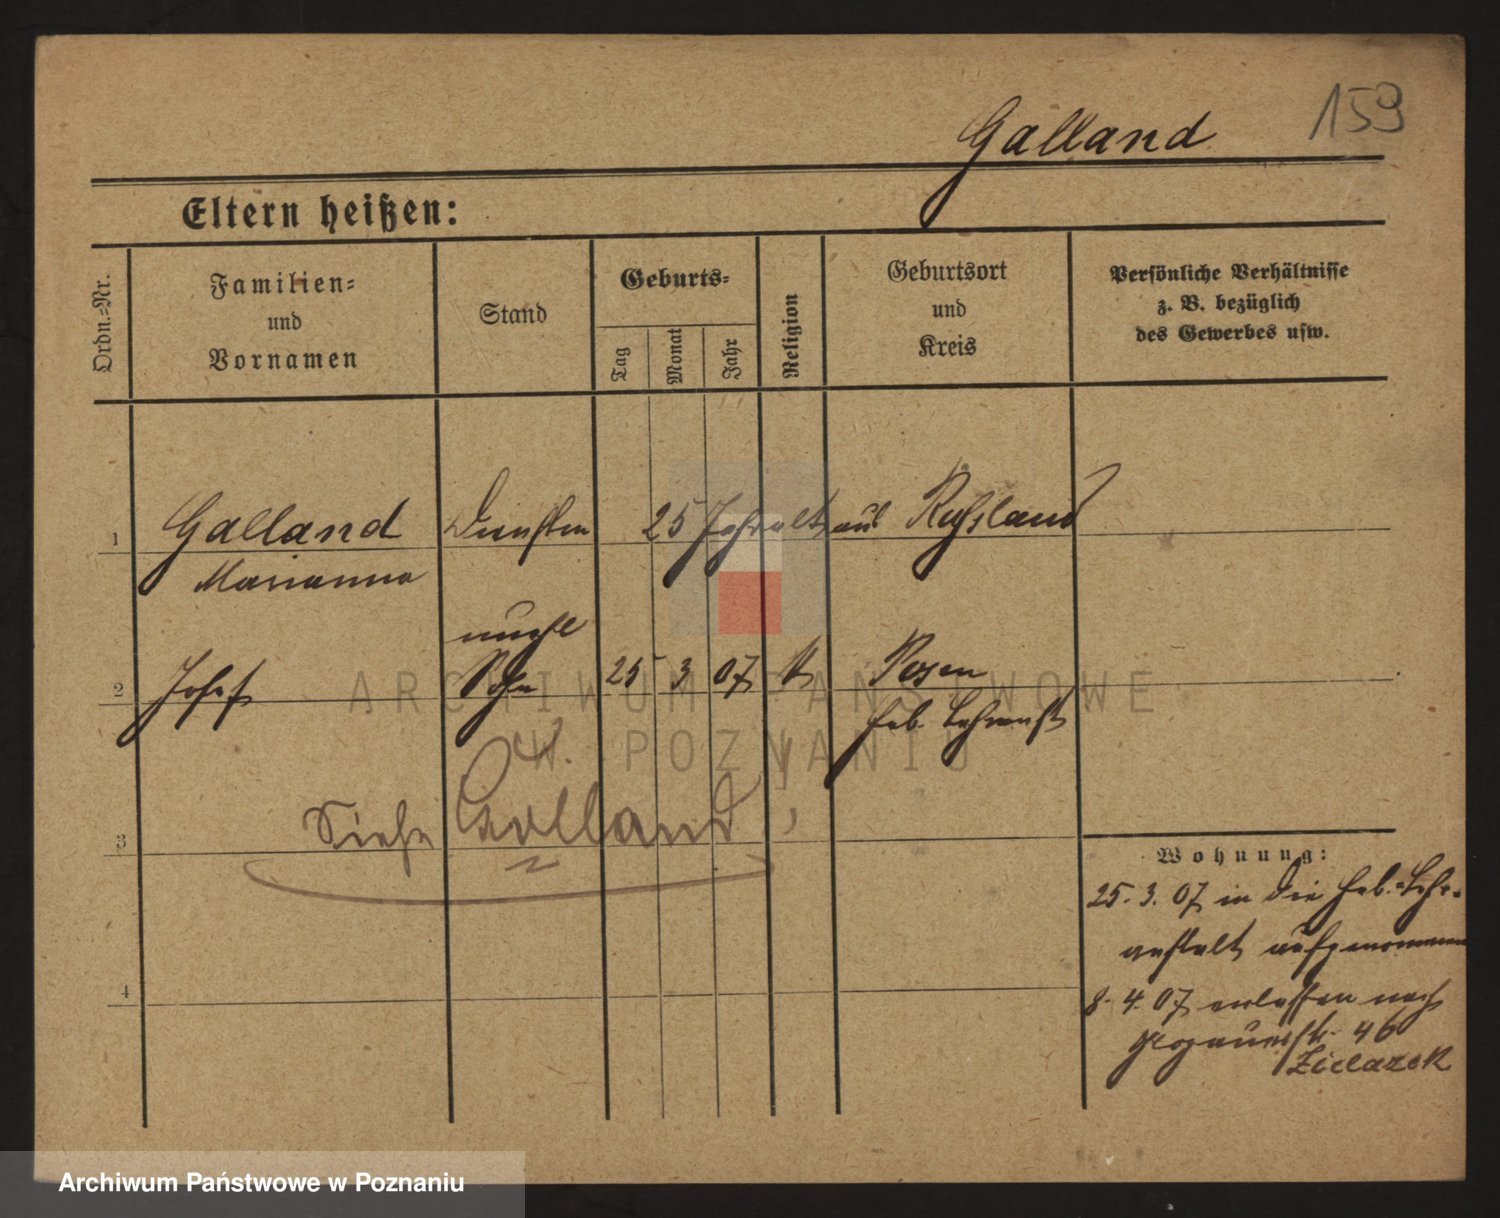 159
Galland
Eltern heißen:
Ordn.-Nr.
Familien-
und
Vornamen
Stand
Geburts-
Tag
Monat
Jahr
Religion
Geburtsort
und
Kreis
Persönliche Verhältnisse
z. B. bezüglich
des Gewerbes usw.
1 Galland 25 Jahr alt aus Russland
Marianna
unehl
2 Josef Sohn 25 3 07 K Posen
Heb. Lehranst
3 Siehe Golland
4
Wohnung:
25. 3. 07 in die Heb.-Lehr-
anstalt aufgenommen
8. 4. 07 entlassen nach
Glogauerstr. 46
Zielazek
ARCHIWUM PAŃSTWOWE
W POZNANIU
Archiwum Państwowe w Poznaniu